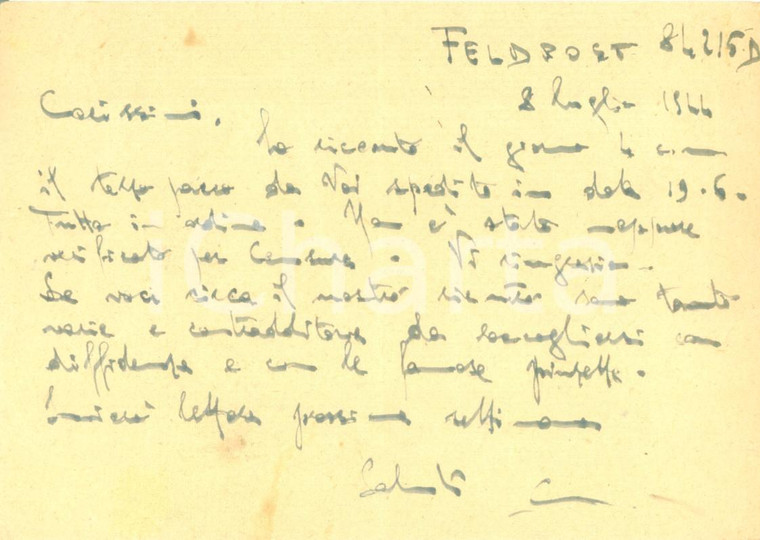 FELDPOST 84215D
8 luglio 1944
Carissimi,
ho ricevuto il giorno 4 c.m
il terzo pacco da Voi spedito in data 19.6.
Tutto in ordine. Non è stato neppure
verificato per Censura. Vi ringrazio.
Le voci circa il nostro rientro sono tanto
varie e contradditorie da accogliersi con
diffidenza e con le famose pinzette.
Invierò lettera prossima settimana
Saluti
iCharta